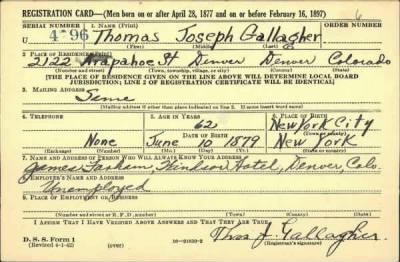 REGISTRATION CARD—(Men born on or after April 28, 1877 and on or before February 16, 1897)
SERIAL NUMBER 1. NAME (Print)
U 496 Thomas Joseph Gallagher
(First) (Middle) (Last)
2. PLACE OF RESIDENCE (Print)
2122 Arapahoe St Denver Denver Colorado
(Number and street) (Town, township, village, or city) (County) (State)
[THE PLACE OF RESIDENCE GIVEN ON THE LINE ABOVE WILL DETERMINE LOCAL BOARD
JURISDICTION; LINE 2 OF REGISTRATION CERTIFICATE WILL BE IDENTICAL]
3. MAILING ADDRESS
Same
[Mailing address if other than place indicated on line 2. If same insert word same]
4. TELEPHONE 5. AGE IN YEARS 6. PLACE OF BIRTH
62 New York City
DATE OF BIRTH (Town or county)
None June 10 1879 New York
(Exchange) (Number) (Mo.) (Day) (Yr.) (State or country)
7. NAME AND ADDRESS OF PERSON WHO WILL ALWAYS KNOW YOUR ADDRESS
James Windsor Hotel, Denver, Colo.
8. EMPLOYER'S NAME AND ADDRESS
Unemployed
9. PLACE OF EMPLOYMENT OR BUSINESS
(Number and street or R. F. D. number) (Town) (County) (State)
I AFFIRM THAT I HAVE VERIFIED ABOVE ANSWERS AND THAT THEY ARE TRUE.
D. S. S. Form 1 Thos J. Gallagher
(Revised 4-1-42) (over) 16—21630-2 (Registrant's signature)